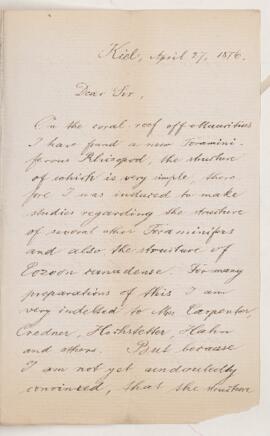 Kiel, April 27, 1876.
Dear Sir,
On the coral reef off Mauritius
I have found a new Foramini-
ferous Rhizopod, the structure
of which is very simple, there
fore I was induced to make
studies regarding the structure
of several other Foraminifers
and also the structure of
Eozoon canadense. For many
preparations of this I am
very indebted to Mrs Carpenter
Credner, Hochstetter, Hahn
and others. But because
I am not yet undoubtedly
convinced, that the structure